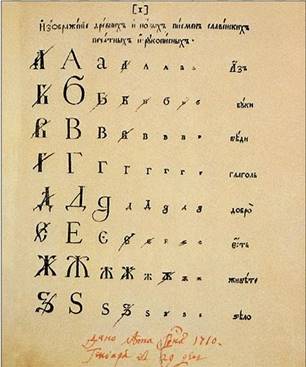 [1]
Изображенїе древнихъ и новыхъ писменъ славенскихъ
печатныхъ и рукописныхъ.
А А а а а а а азъ
Б Б Б б б б б буки
В В В в в в в вѣди
Г Г Г г г г г глаголь
Д Д д д д д д добро
Є Е є е е е е есть
Ж Ж Ж ж ж ж ж живѣте
Ѕ Ѕ Ѕ ѕ ѕ ѕ ѕ ѕѣло
Дано лѣта 1710.
Генваря 29 дня